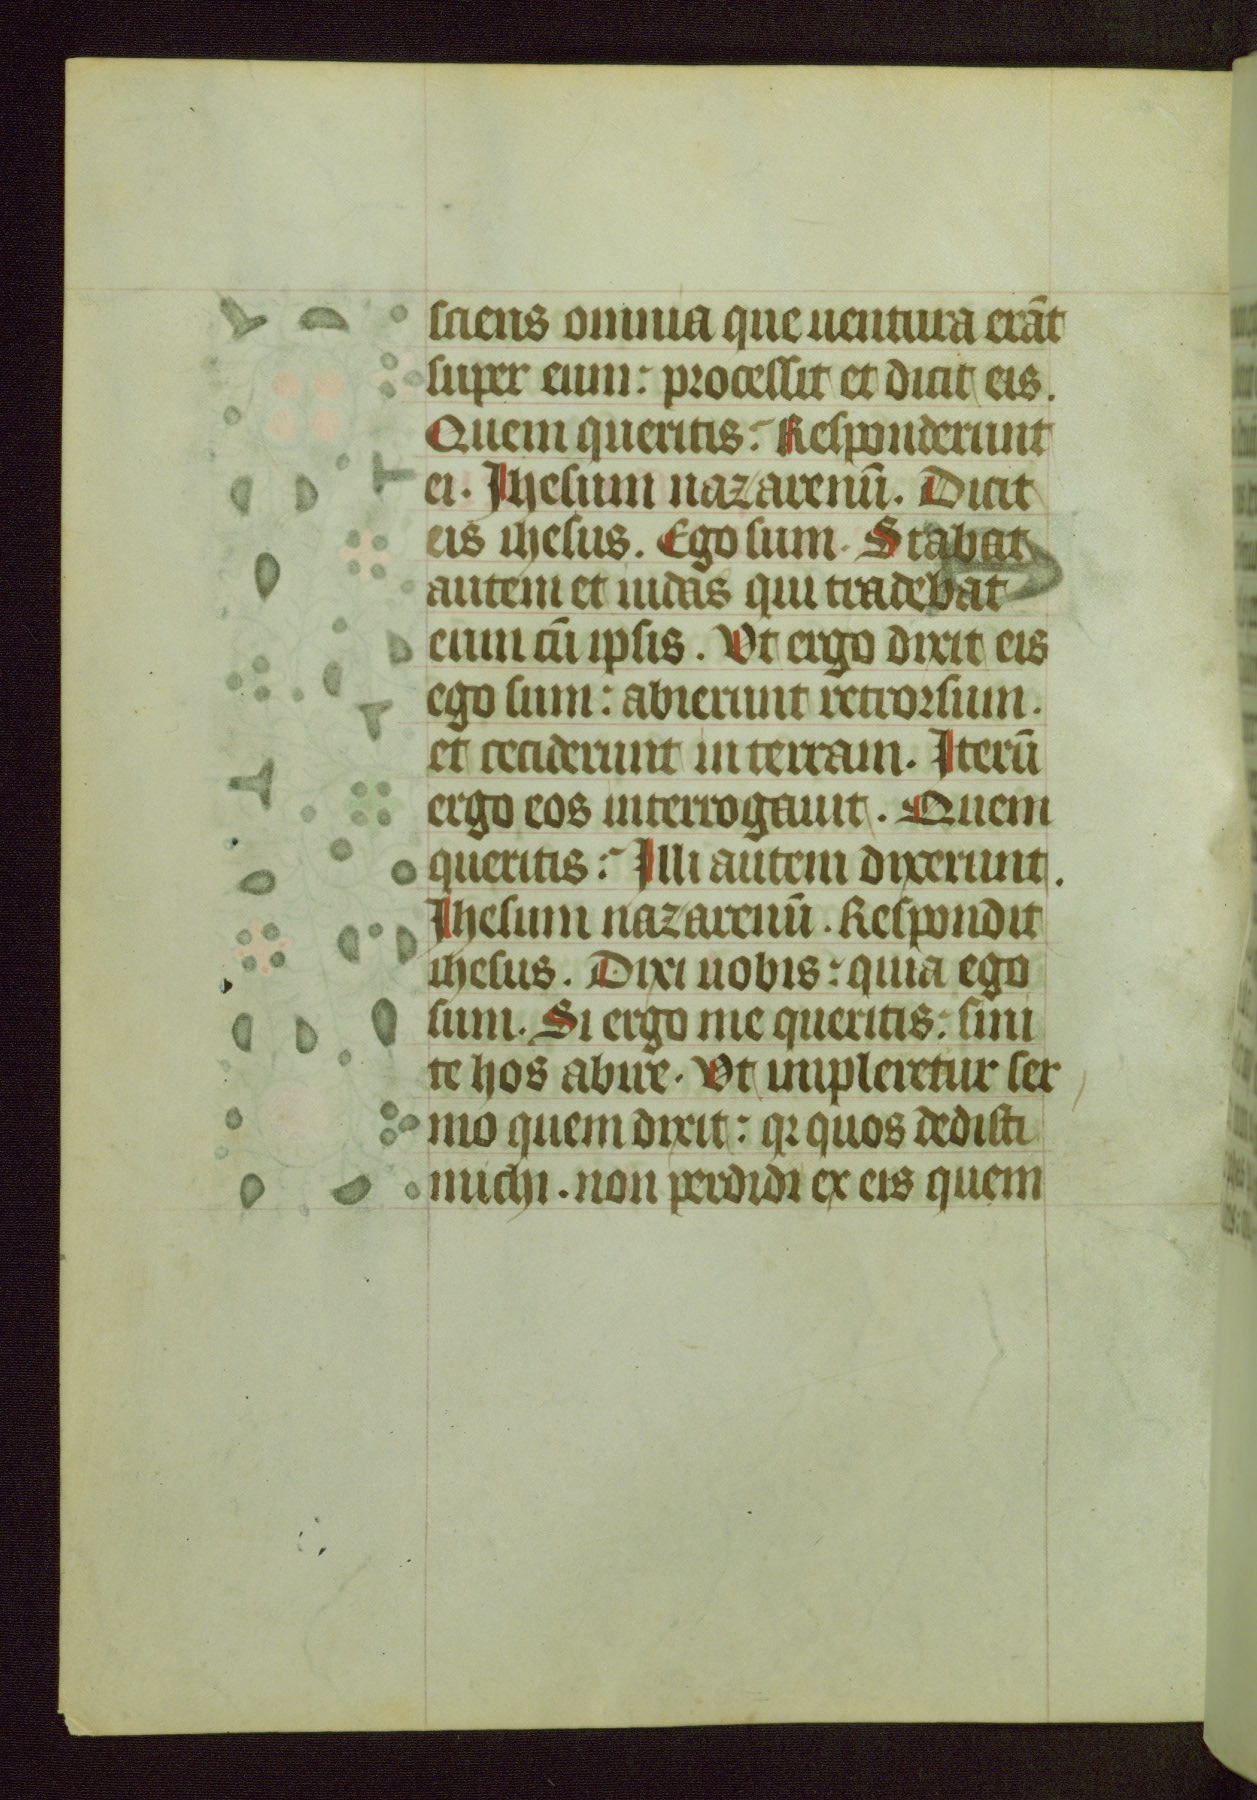 sciens omnia que uentura erāt
super eum: processit et dicit eis.
Quem queritis: Responderunt
ei. Ihesum nazarenū. Dicit
eis ihesus. Ego sum. Stabat
autem et iudas qui tradebat
eum cū ipsis. Vt ergo dixit eis
ego sum: abierunt retrorsum.
et ceciderunt in terram. Iterū
ergo eos interrogauit. Quem
queritis: Illi autem dixerunt.
Ihesum nazarenū. Respondit
ihesus. Dixi uobis: quia ego
sum. Si ergo me queritis: sini
te hos abire. Vt impleretur ser
mo quem dixit: qꝛ quos dedisti
michi. non perdidi ex eis quem